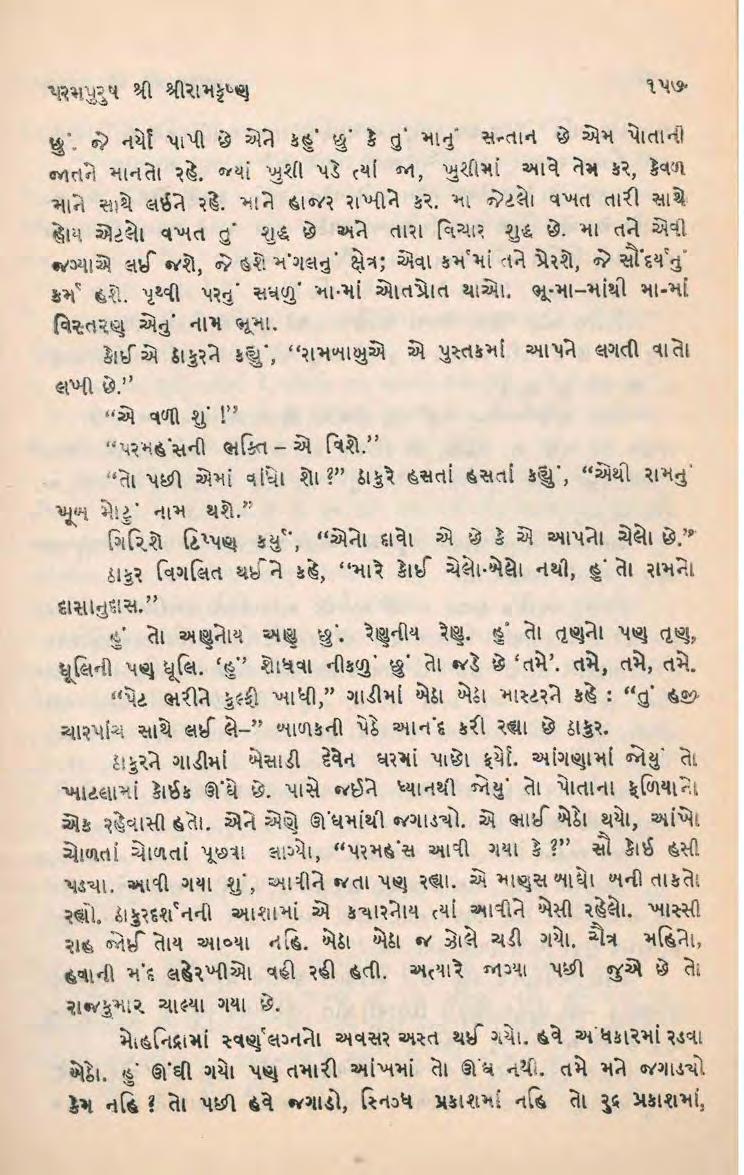 પરમપુરુષ શ્રી શ્રીરામકૃષ્ણ ૧૫૭
છું. જે નર્યો પાપી છે એને કહું છું કે તું માનું સન્તાન છે એમ પોતાની
જાતને માનતો રહે. જ્યાં ખુશી પડે ત્યાં જા, ખુશીમાં આવે તેમ કર, કેવળ
માને સાથે લઈને રહે. માને હાજર રાખીને કર. મા જેટલો વખત તારી સાથે
હોય એટલો વખત તું શુદ્ધ છે અને તારા વિચાર શુદ્ધ છે. મા તને એવી
જગ્યાએ લઈ જશે, જે હશે મંગલનું ક્ષેત્ર; એવા કર્મમાં તને પ્રેરશે, જે સૌંદર્યનું
કર્મ હશે. પૃથ્વી પરનું સઘળું મા-માં ઓતપ્રોત થાઓ. ભૂ-મા–માંથી મા-માં
વિસ્તરણ એનું નામ ભૂમા.
કોઈ એ ઠાકુરને કહ્યું, “રામબાબુએ એ પુસ્તકમાં આપને લગતી વાતો
લખી છે.”
“એ વળી શું !”
“પરમહંસની ભક્તિ – એ વિશે.”
“તો પછી એમાં વાંધો શો ?” ઠાકુરે હસતાં હસતાં કહ્યું, “એથી રામનું
ખૂબ મોટું નામ થશે.”
ગિરિશે ટિપ્પણ કર્યું, “એનો દાવો એ છે કે એ આપનો ચેલો છે.”
ઠાકુર વિગલિત થઈને કહે, “મારે કોઈ ચેલો-બેલો નથી, હું તો રામનો
દાસાનુદાસ.”
હું તો અણુનોય અણુ છું. રેણુનીય રેણુ. હું તો તૃણનો પણ તૃણ,
ધૂલિની પણ ધૂલિ. ‘હું’ શોધવા નીકળું છું તો જડે છે ‘તમે’. તમે, તમે, તમે.
“પેટ ભરીને કુલ્ફી ખાધી,” ગાડીમાં બેઠા બેઠા માસ્ટરને કહે : “તું હજી
ચારપાંચ સાથે લઈ લે–” બાળકની પેઠે આનંદ કરી રહ્યા છે ઠાકુર.
ઠાકુરને ગાડીમાં બેસાડી દેવેન ઘરમાં પાછો ફર્યો. આંગણામાં જોયું તો
ખાટલામાં કોઈક ઊંઘે છે. પાસે જઈને ધ્યાનથી જોયું તો પોતાના ફળિયાનો
એક રહેવાસી હતો. એને એણે ઊંઘમાંથી જગાડ્યો. એ ભાઈ બેઠો થયો, આંખો
ચોળતાં ચોળતાં પૂછવા લાગ્યો, “પરમહંસ આવી ગયા કે ?” સૌ કોઈ હસી
પડ્યા. આવી ગયા શું, આવીને જતા પણ રહ્યા. એ માણસ બાઘો બની તાકતો
રહ્યો. ઠાકુરદર્શનની આશામાં એ ક્યારનોય ત્યાં આવીને બેસી રહેલો. ખાસ્સી
રાહ જોઈ તોય આવ્યા નહિ. બેઠા બેઠા જ ઝોલે ચડી ગયો. ચૈત્ર મહિનો,
હવાની મંદ લહેરખીઓ વહી રહી હતી. અત્યારે જાગ્યા પછી જુએ છે તો
રાજકુમાર ચાલ્યા ગયા છે.
મોહનિદ્રામાં સ્વર્ણલગ્નનો અવસર અસ્ત થઈ ગયો. હવે અંધકારમાં રડવા
બેઠો. હું ઊંઘી ગયો પણ તમારી આંખમાં તો ઊંઘ નથી. તમે મને જગાડ્યો
કેમ નહિ ? તો પછી હવે જગાડો, સ્નિગ્ધ પ્રકાશમાં નહિ તો રુદ્ર પ્રકાશમાં,